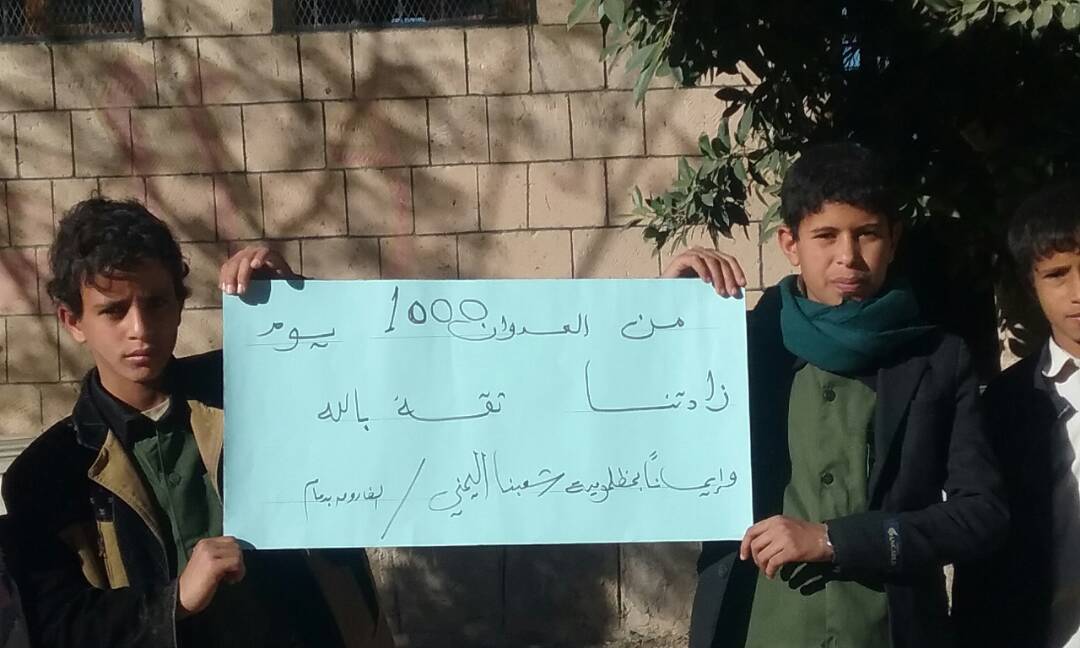 1000 يوم من العدوان
زادتنا ثقة بالله
وإيمانًا بمظلومية شعبنا اليمني /